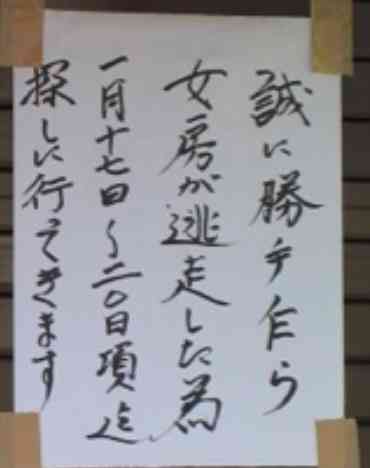 誠に勝手乍ら
女房が逃走した為
一月十七日〜二〇日項迄
探しに行ってきます